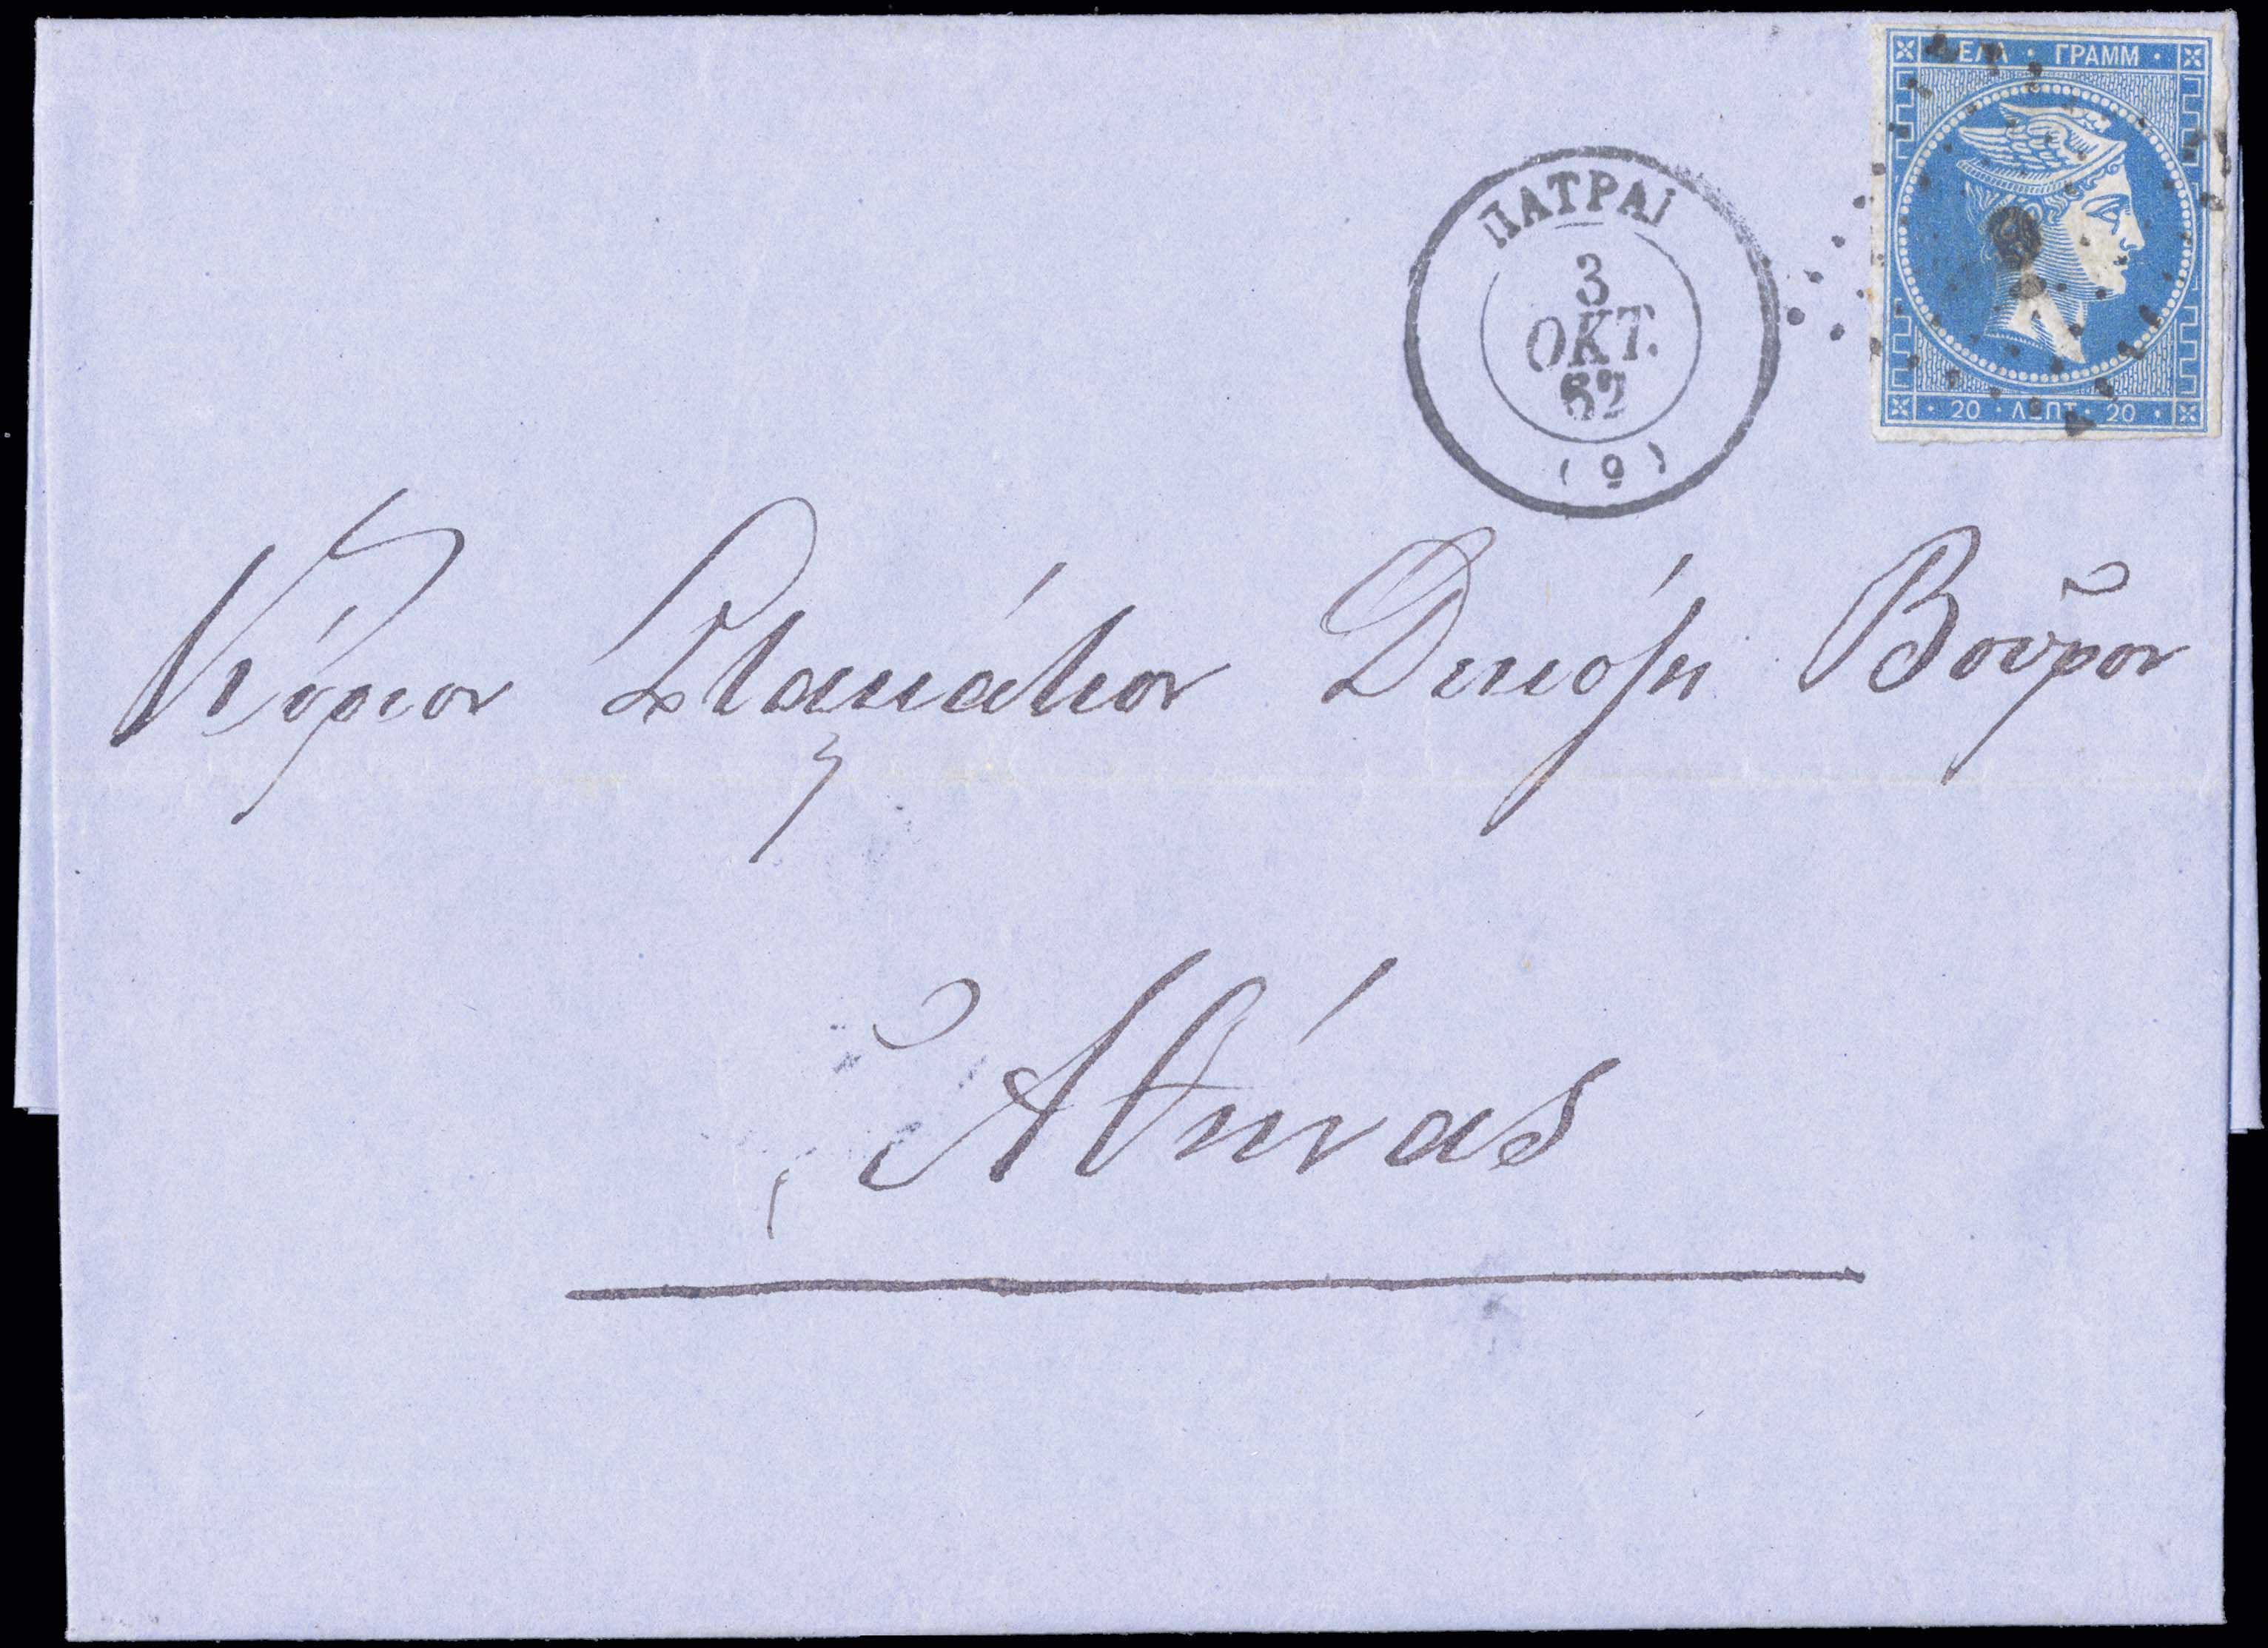 ΕΛΛ · ΓΡΑΜΜ ·
· 20 · ΛΕΠΤ · 20 ·
ΠΑΤΡΑΙ
3
ΟΚΤ.
62
(9)
Κύριον Σταμάτιον Δεκόζη Βοῦρον
Ἀθήνας